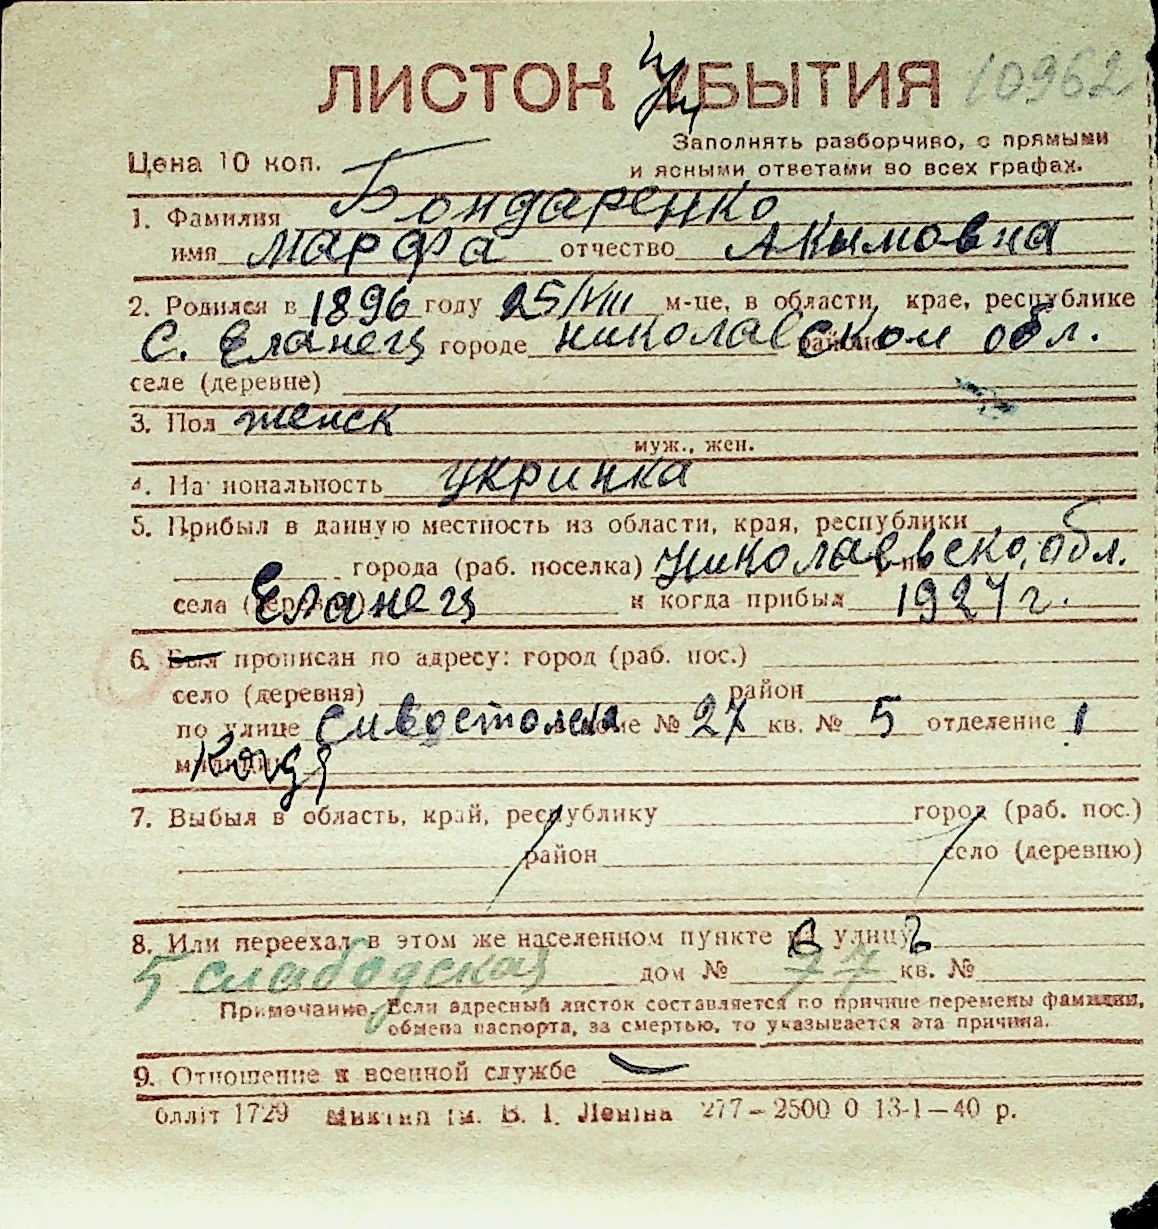 10962
ЛИСТОК УБЫТИЯ
Цена 10 коп.
Заполнять разборчиво, с прямыми
и ясными ответами во всех графах.
1. Фамилия Бондаренко
имя Марфа отчество Акымовна
2. Родился в 1896 году 25/VIII м-це, в области, крае, республике
С. Еланец городе николаевской обл.
селе (деревне)
3. Пол женск
муж., жен.
4. Национальность укринка
5. Прибыл в данную местность из области, края, республики
города (раб. поселка) Николаевско, обл.
села (деревни) Еланец и когда прибыл 1927 г.
6. Был прописан по адресу: город (раб. пос.)
село (деревня) район
по улице доме № 27 кв. № 5 отделение 1
милиции
7. Выбыл в область, край, республику город (раб. пос.)
район село (деревню)
8. Или переехал в этом же населенном пункте на улицу 6
5 слабодская дом № 77 кв. №
Примечание. Если адресный листок составляется по причине перемены фамилии,
обмена паспорта, за смертью, то указывается эта причина.
9. Отношение к военной службе
Облліт 1729 Миктип ім. В. І. Леніна 277–2500 0 13-1–40 р.